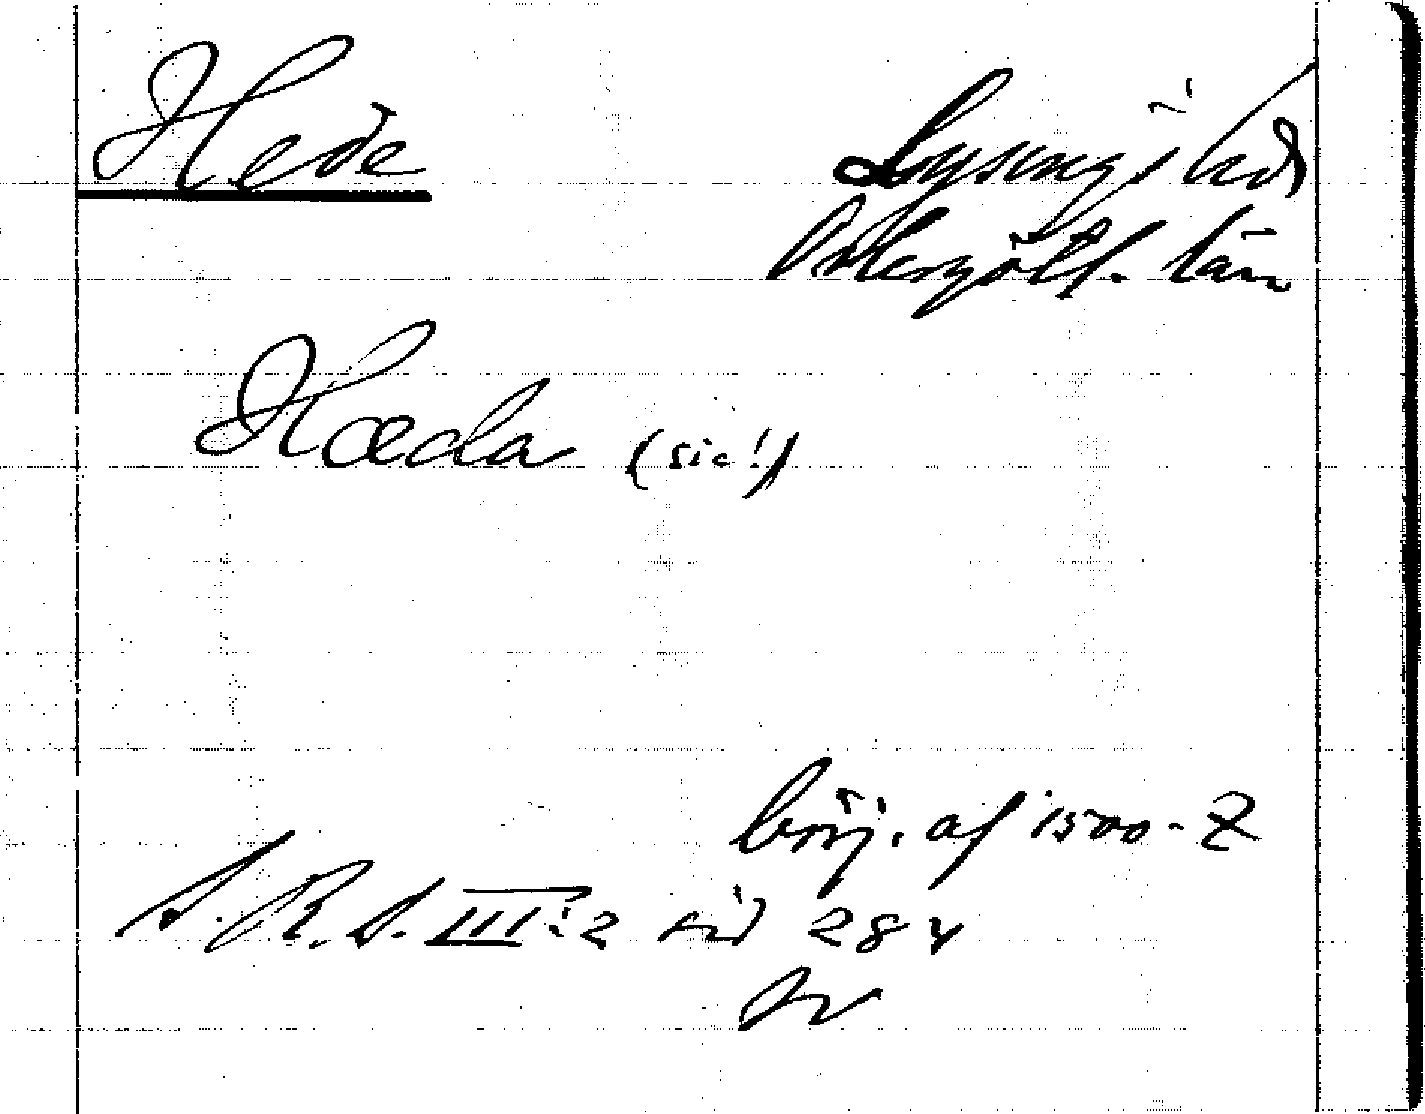 Heda
Lysings härad
Östergötl. län
Hæda (sic!)
börj. af 1500-t
S.R.S. III:2 sid 284